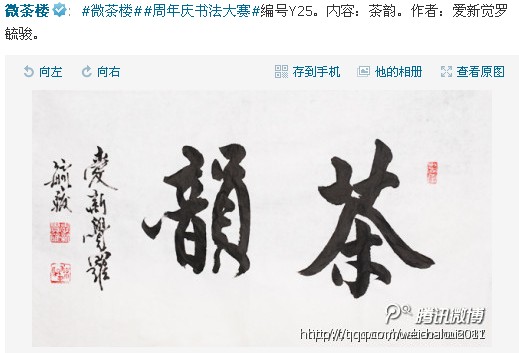 微茶楼: #微茶楼##周年庆书法大赛#编号Y25。内容：茶韵。作者：爱新觉罗
毓骏。
向左 向右 存到手机 他的相册 查看原图
茶韻
愛新覺羅
腾讯微博